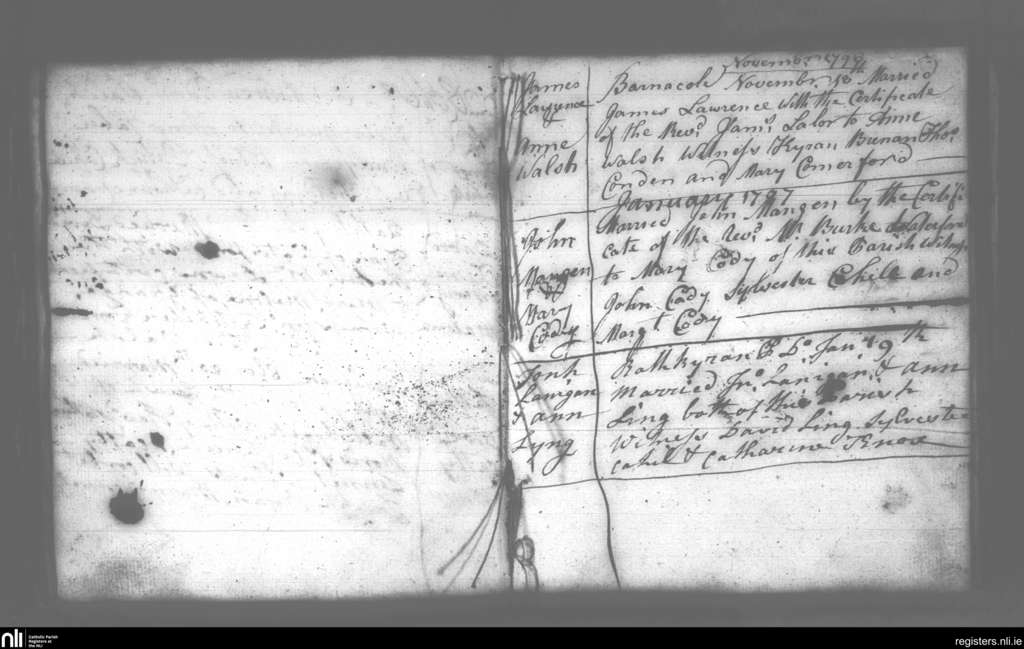 November 1798
James Barnacole November 18th Married
Lawrence James Lawrence with the Certificate
of the Revd. James Lalor to Anne
Anne Walsh Witness Kyran Brenan Thos.
Walsh Conden and Mary Comerford
January 1797
Married John Mangen by the Certifi
John cate of the Revd. Mr. Burke
Mangen to Mary Cody of this Parish Witness
& Mary John Cody Sylvester Cahill and
Cody Margt Cody
Rathkyran Do. Jany. 19th
Lanigan Married Jno. Lanigan & ann
& ann Ling both of this Parish
Lyng Witness David Ling Sylvester
Cahil & Catharine Knox
nli
Catholic Parish
Registers at
the NLI
registers.nli.ie